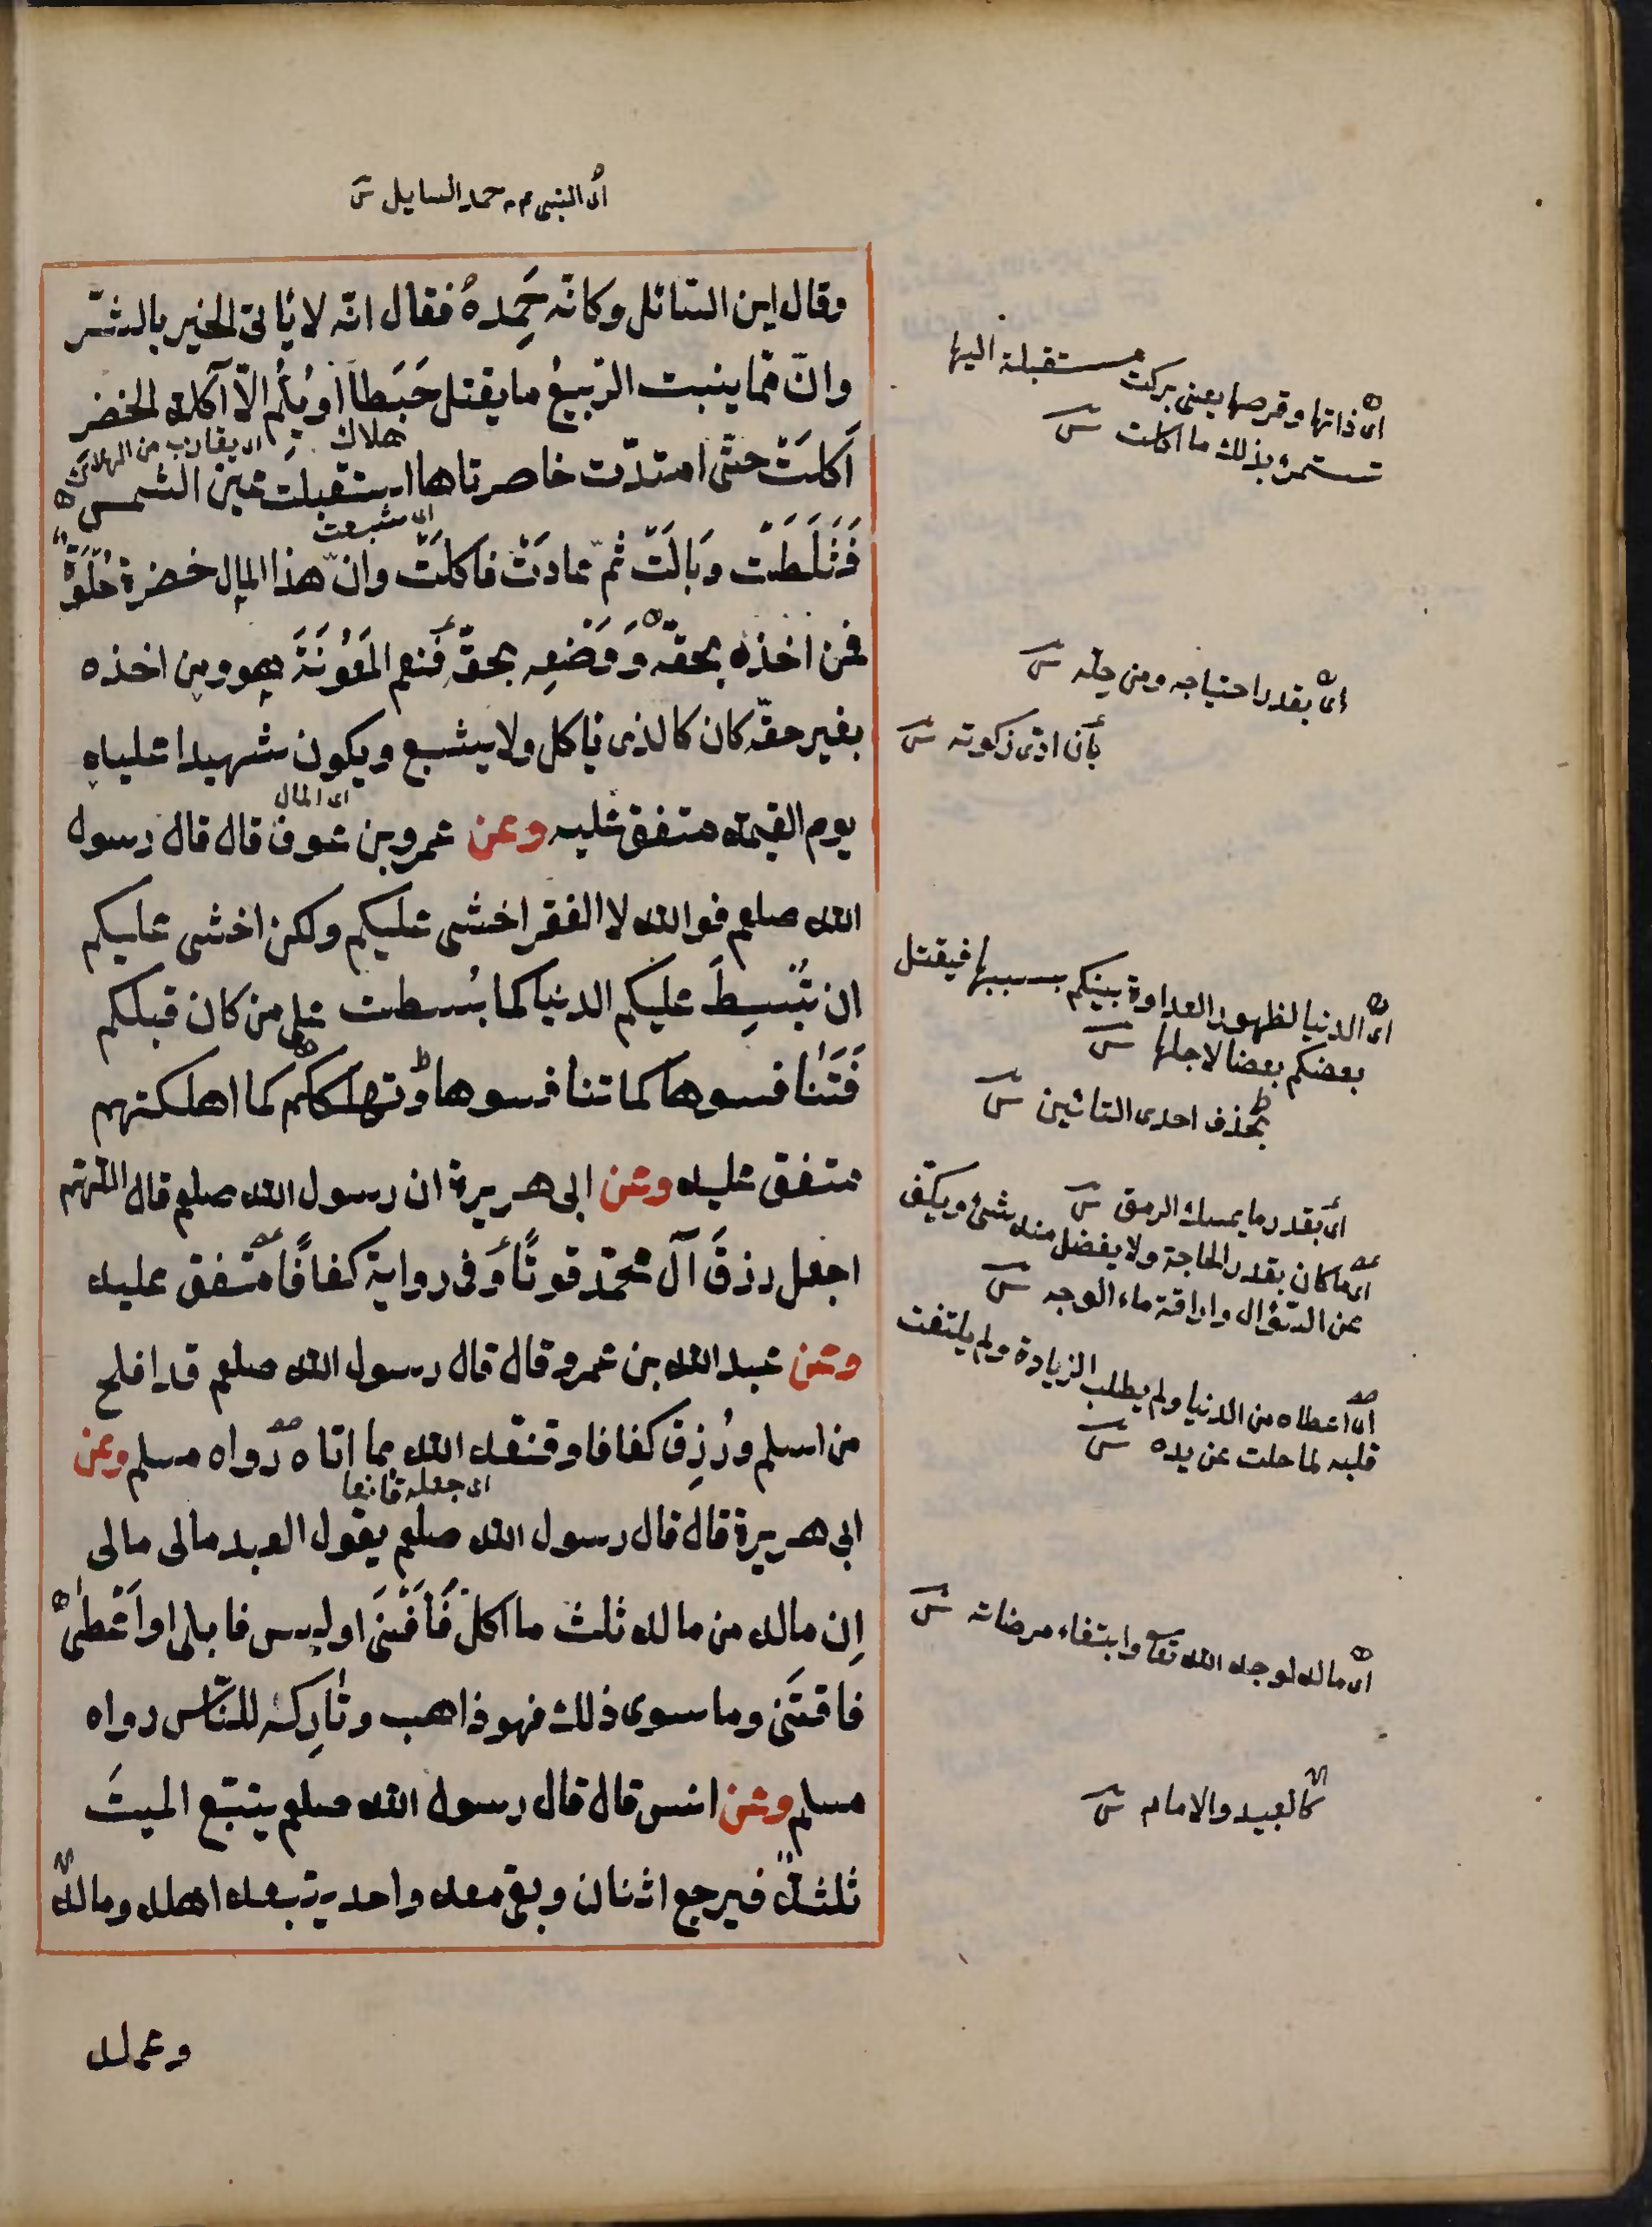 اى النبى م حمد السايل ش
وقال اين السّائل وكانّه حَمِدهُ فقال انّه لا يَأتى الخير بالشّر
وانّ ممّا ينبت الرّبيعُ ما يقتل حَبَطاً او يُلِمُّ الّا آكلة الخضر
هلاك
اى يقارب من الهلاك
اَكلَتْ حتّى امتدّت خاصرتاها استقبلت عين الشمس
اى شبعت
فَثَلَطَت وَبَالَت ثمّ عادَتْ فاكلَت وانّ هذا المال خضرة حُلوَة
فمن اخذه بحقّه وَوَضْعِه بحقّه فنعم المَعُونَةَ هو ومن اخذه
بغير حقّه كان كالذى يأكل ولا يشبع ويكون شهيدا عليه
اى المال
يوم القيمة متفق عليه وعن عمرو بن عوف قال قال رسول
الله صلعم فوالله لا الفقر اخشى عليكم ولكن اخشى عليكم
ان تُبْسِطَ عليكم الدنيا كما بُسطت على من كان قبلكم
فَتَنَافسوها كما تنافسوها وتهلككم كما اهلكتهم
متفق عليه وعن ابى هريرة ان رسول الله صلعم قال اللّهم
اجعل رزقَ آل محمّد قوتًا وَفى رواية كفافًا متّفق عليه
وعن عبد الله بن عمرو قال قال رسول الله صلعم قد افلح
من اسلم ورُزِق كفافا وقنّعه الله بما اتاه رواه مسلم وعن
اى جعله قانعا
ابى هريرة قال قال رسول الله صلعم يقول العبد مالى مالى
اِن ماله من ماله ثلث ما اكلَ فَاَفْنَى او لبس فابلى او اَعْطٰى
فاقتَنى وما سوى ذلك فهو ذاهب وتارِكه للنّاس رواه
مسلم وعن انس قال قال رسول الله صلعم يتبّع الميتَ
ثلثة فيرجع اثنان وبقى معه واحد يتبعه اهله وماله
وعمله
اى ذاتها وقرصها يعنى بركت مستقبلة اليها
تستمرء بذلك ما اكلت ش
اى بقدر احتياجه ومن حله ش
بأن ادى زكوته ش
اى الدنيا لظهور العداوة بينكم بسببها فيقتل
بعضكم بعضا لاجلها ش
بحذف احدى التائين ش
اى بقدر ما يمسك الرمق ش
اى ما كان بقدر الحاجة ولا يفضل منه شئ ويكف
عن السّؤال واراقة ماء الوجه ش
اى اعطاه من الدنيا ولم يطلب الزيادة ولم يلتفت
قلبه لما خلت عن يده ش
اى ماله لوجه الله تعا وابتغاء مرضاته ش
كالعبيد والاماء ش